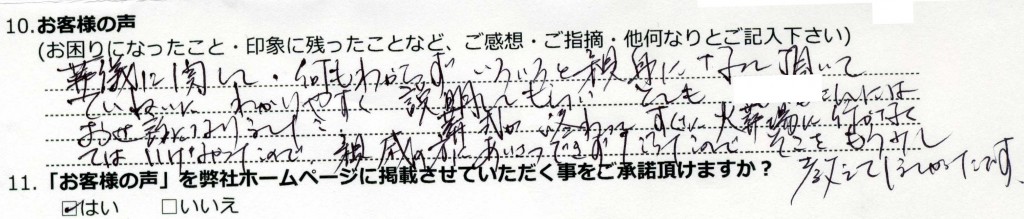 10.お客様の声
(お困りになったこと・印象に残ったことなど、ご感想・ご指摘・他何なりとご記入下さい)
葬儀に関して、何もわからず いろいろと親身になって頂いて
ていねいに わかりやすく 説明してもらい とても さんには
お世話になりました 葬式が終わって すぐに火葬場に行かなくて
てはいけなかったので、親戚の方にあいさつできず だったので そこをもう少し
教えてほしかったです、
11.「お客様の声」を弊社ホームページに掲載させていただく事をご承諾頂けますか？
☑はい □いいえ